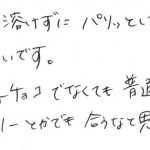 溶けずに パリッとい
いです。
ーチョコ でなくても 普通
リーとかでも 合うなと思